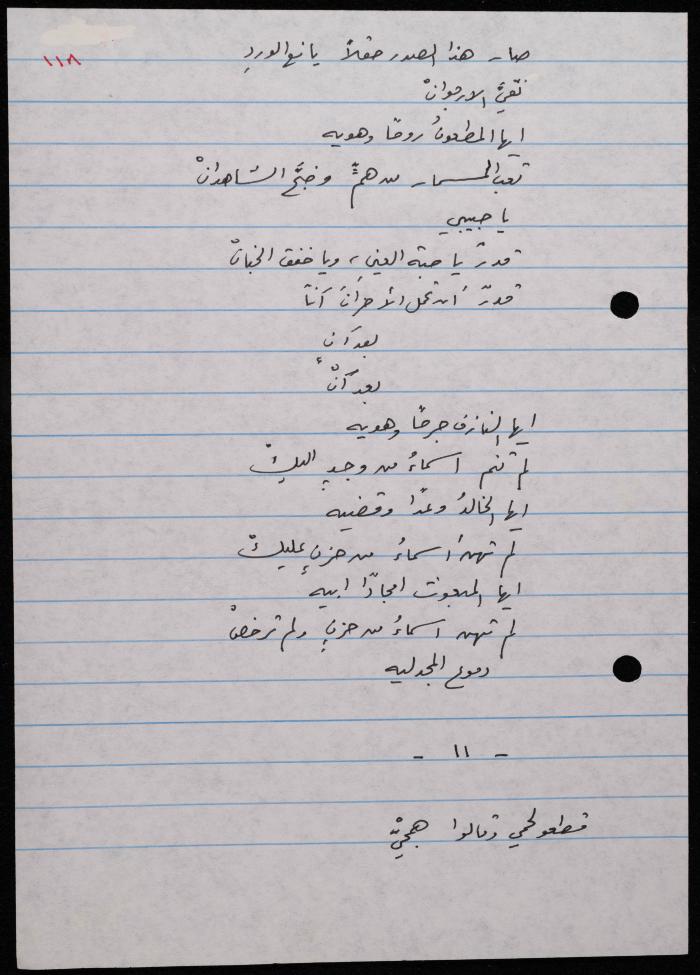 ١١٨
صار هذا الصدر حقلاً يانع الوردِ
نقيَّ الارجوانْ
ايها المطعونُ روحًا وهويه
تعب المسمار من همٍّ وضجَّ الشاهدانْ
يا حبيبي
قدرٌ يا حبة العينِ، ويا خفق الجنانْ
قدرٌ أن تحمل الأحزانَ آنًا
بعد آنٍ
بعد آنْ
ايها النازف جرحًا وهويه
لم تنم اسماءُ من وجدٍ اليكْ
ايها الخالدُ وعدًا وقضيه
لم تهن أسماءُ من حزنٍ عليكْ
ايها المبعوث امجادًا ابيه
لم تهن اسماءُ من حزنٍ ولم ترخصْ
دموع المجدليه
- ١١ -
قطعو لحمي وقالوا همجيٌّ